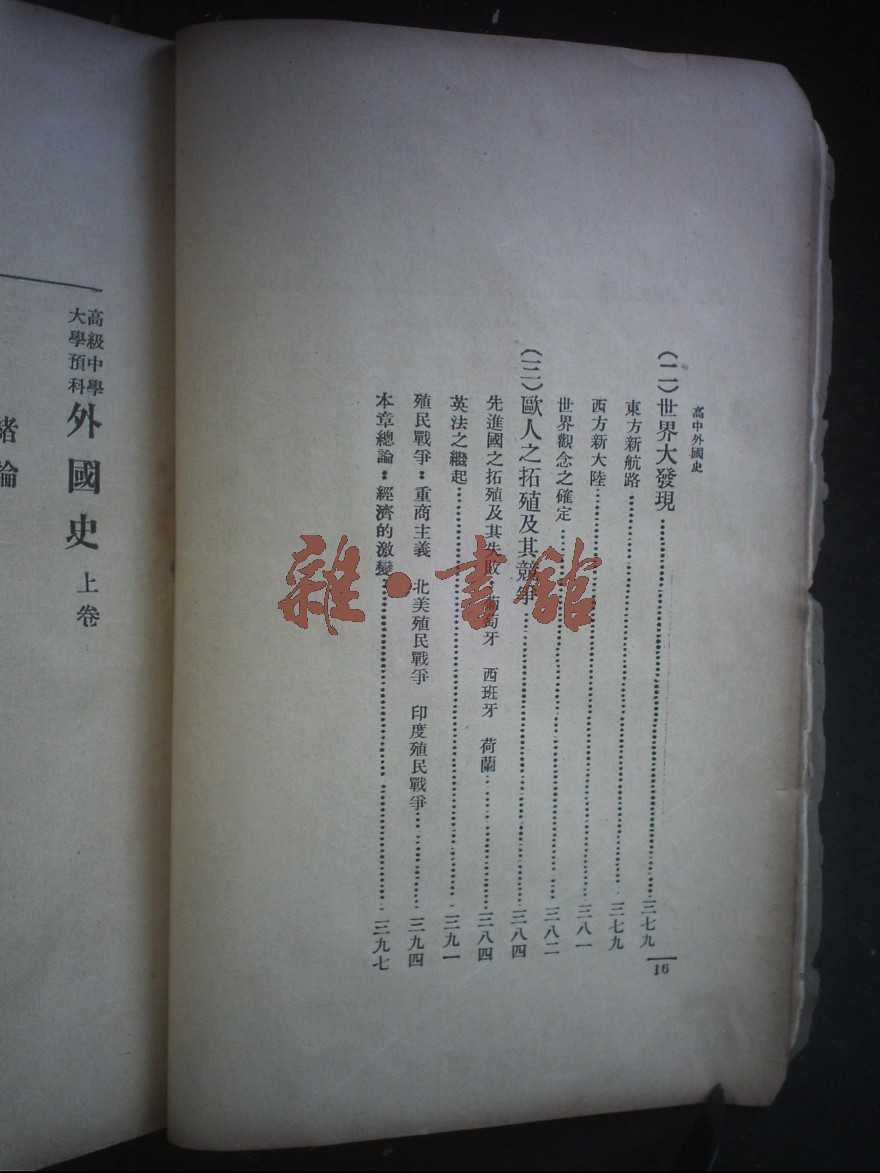 高中外國史
(二)世界大發現…三七九
東方新航路…三七九
西方新大陸…三八一
世界觀念之確定…三八二
(三)歐人之拓殖及其競爭…三八四
先進國之拓殖及其失敗:葡萄牙 西班牙 荷蘭…三八四
英法之繼起…三九一
殖民戰爭:重商主義 北美殖民戰爭 印度殖民戰爭…三九四
本章總論:經濟的激變…三九七
16
高級中學
大學預科
外國史 上卷
緒論
雜·書館